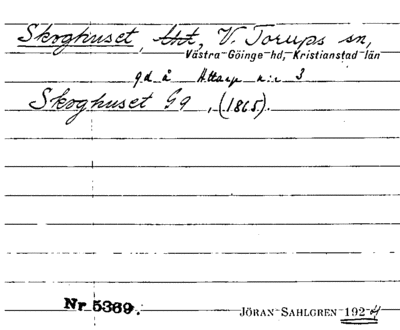 Skoghuset, V. Torups sn,
Västra-Göinge-hd, Kristianstad-län
gd å Attarp n:r 3
Skoghuset Gg, (1865).
Nr 5369. JÖRAN SAHLGREN 1924